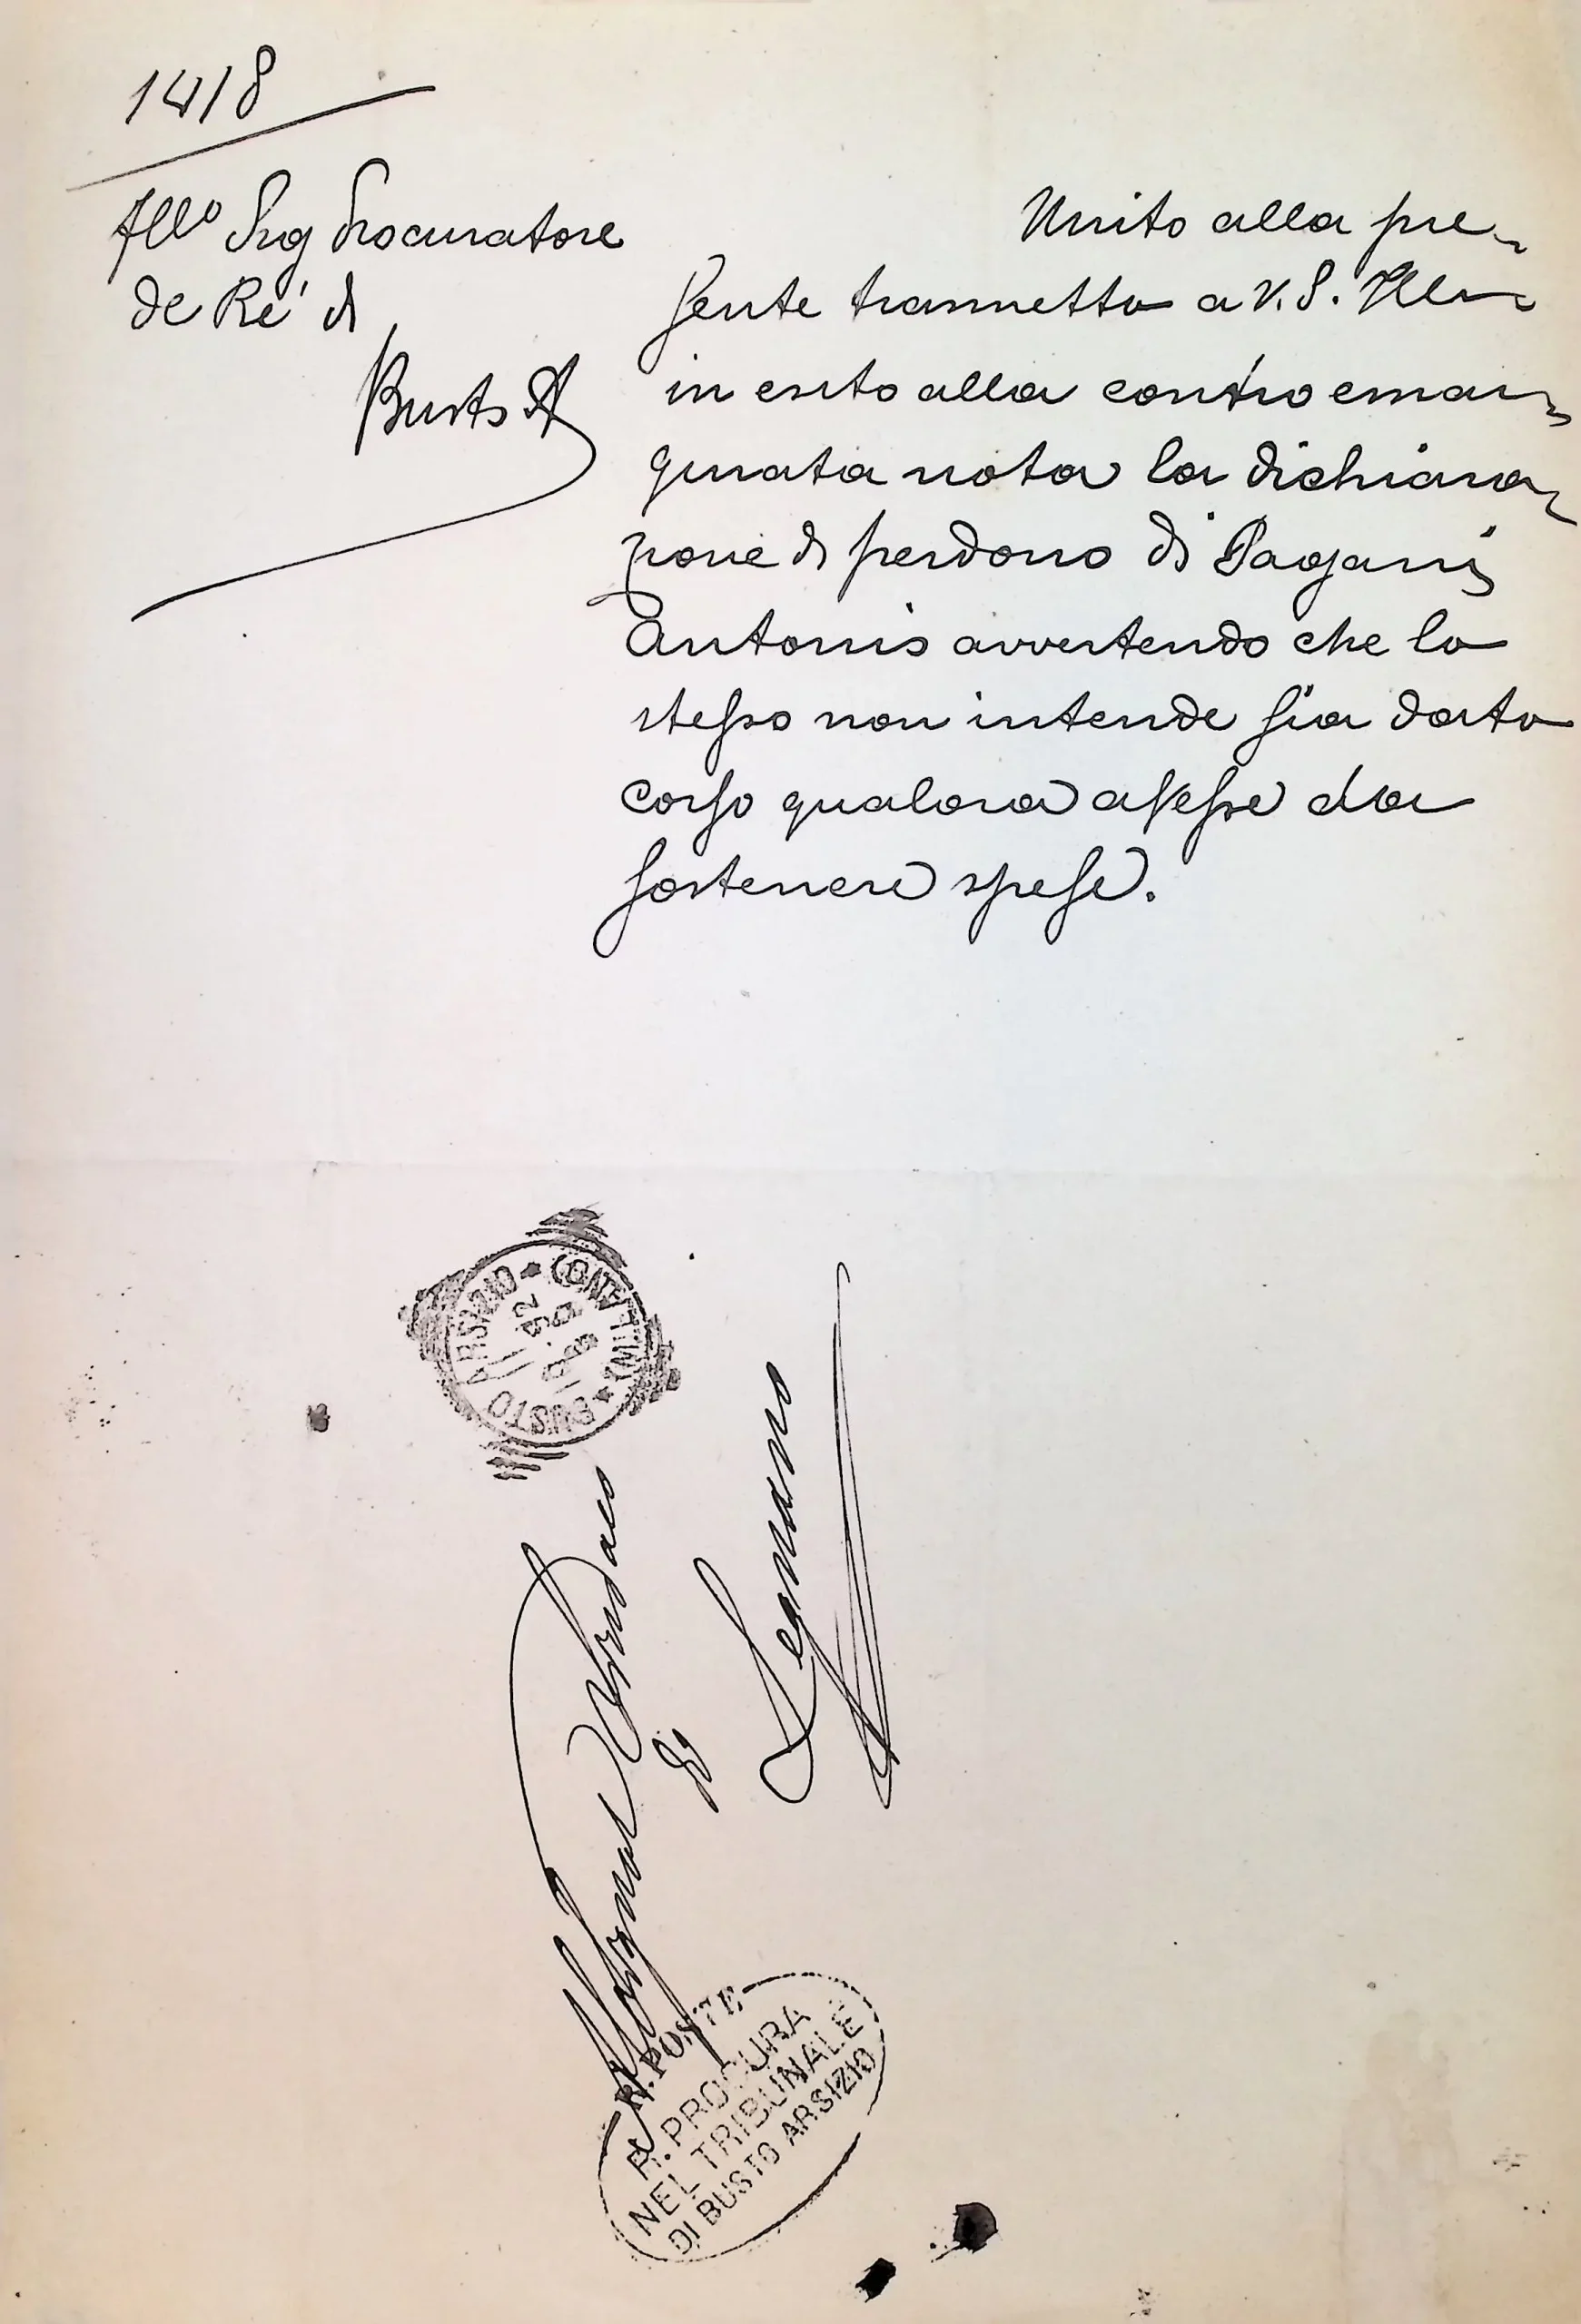 1418
Illo Sig Procuratore
de Ré di
Busto A
Unito alla pre-
sente trasmetto a V. S. Illu-
in esito alla controemar-
ginata nota la dichiara-
zione di perdono di Pagani
Antonio avvertendo che lo
stesso non intende sia dato
corso qualora avesse da
sostenere spese.
BUSTO ARSIZIO * CONTATTINI *
92
Signor Sindaco
di
Legnano
R. POSTE
R. PROCURA
NEL TRIBUNALE
DI BUSTO ARSIZIO